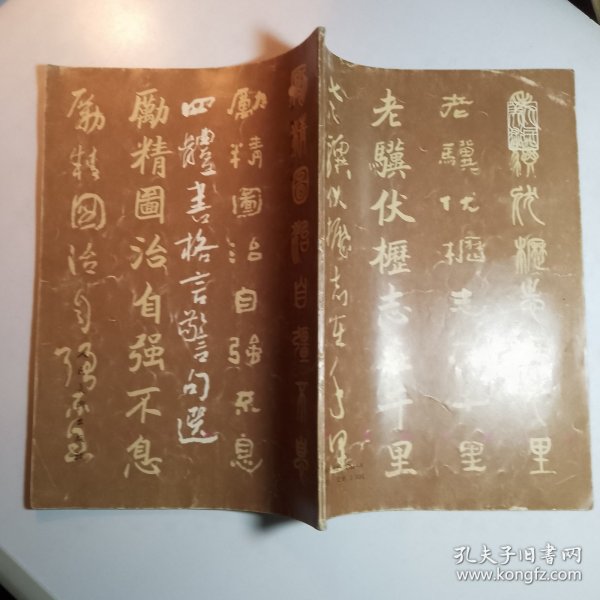 老驥伏櫪志在千里
老驥伏櫪志在千里
老驥伏櫪志在千里
老驥伏櫪志在千里
勵精圖治自強不息
勵精圖治自强不息
四體書格言警句選
勵精圖治自强不息
勵精圖治自强不息
孔夫子旧书网
www.kongfz.com